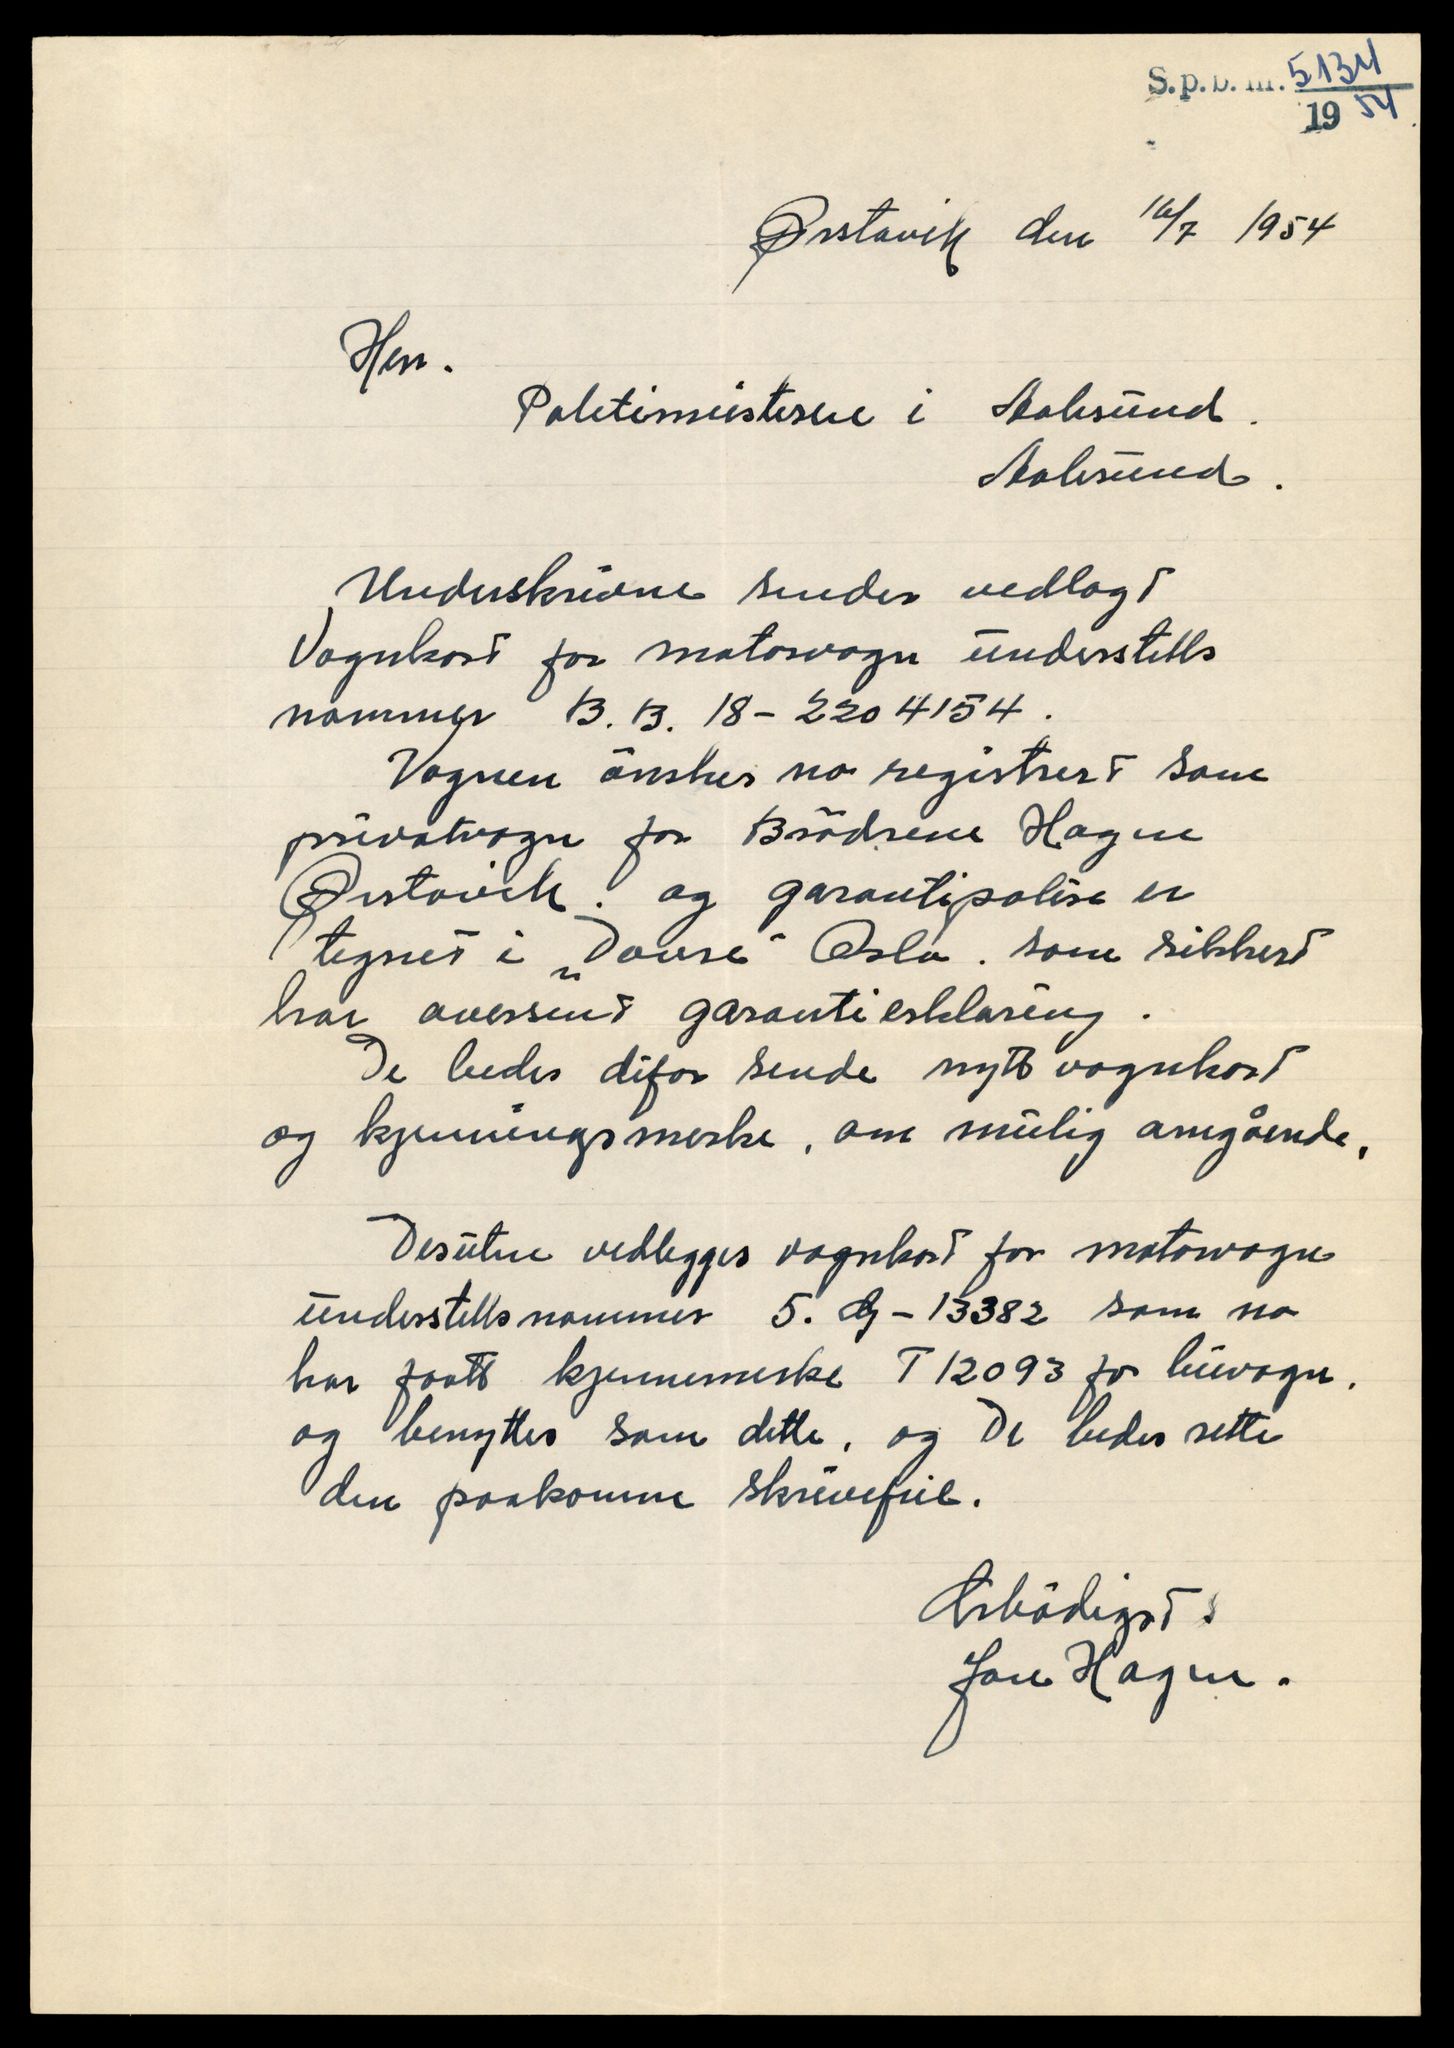 S.p.b. nr. 5134
19 54
Ørstavik den 16/7 1954
Herr.
Politimesteren i Aalesund.
Aalesund.
Underskrivne sender vedlagt
Vognkort for motorvogn understells
nommer B.B. 18-2204154.
Vognen ønskes no registrert som
privatvogn for Brödrene Hagen
Ørstavik. og garantipolise er
tegnet i „Dovre" Oslo. som sikkert
har oversent garantierklæring.
De bedes difor sende nytt vognkort
og kjenningsmerke, om mulig omgående.
Desuten vedlegges vognkort for motorvogn
understellsnommer 5. - 13382 som no
har faatt kjennemerke T 12093 for bilvogn.
og benyttes som dette, og De bedes rette
den paakomne skrivefeil.
Ærbödigst
Jon Hagen.